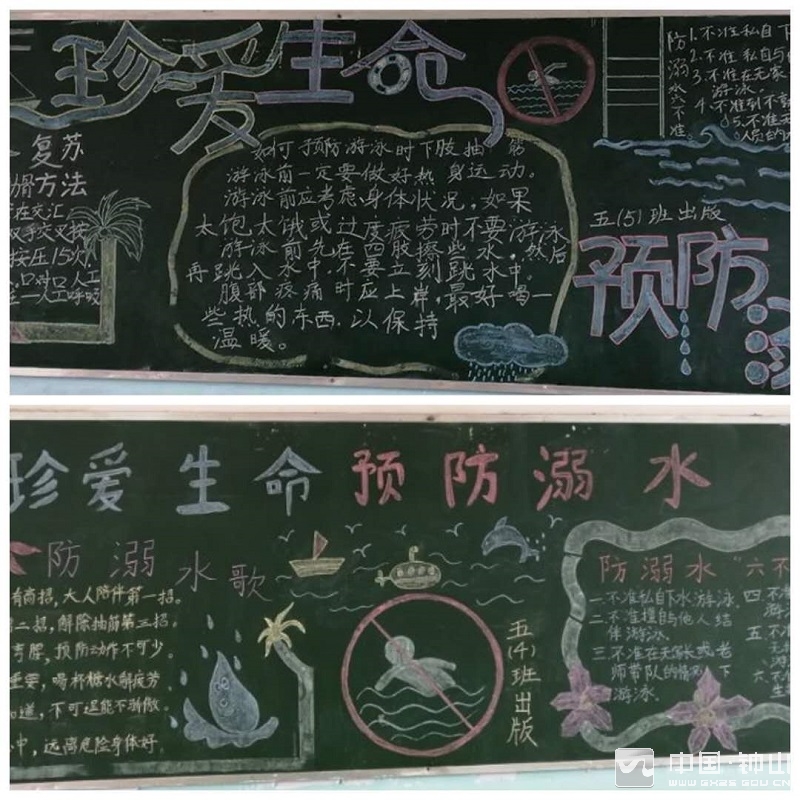 珍爱生命
复苏
方法
双手交叉按
按压15次
如何预防游泳时下肢抽筋
游泳前一定要做好热身运动。
游泳前应考虑身体状况,如果
太饱太饿或过度疲劳时不要游泳
游泳前先在四肢擦些水,然后
再跳入水中.不要立刻跳水中。
腹部疼痛时应上岸,最好喝一
些热的东西.以保持
温暖。
防溺水六不准
1.不准私自下
2.不准私自与
3.不准在无家
游泳。
五(5)班出版
预防
珍爱生命预防溺水
防溺水歌
有高招,大人陪伴第一招。
二招,解除抽筋第三招.
预防动作不可少。
重要,喝杯糖水解疲劳
道,不可逞能不骄傲.
中,远离危险身体好。
五(4)班出版
防溺水"六不
一.不准私自下水游泳.
二.不准擅自与他人结
伴游泳.
三.不准在无家长或老
师带队的情况下
游泳.
四.不准
中国·钟山